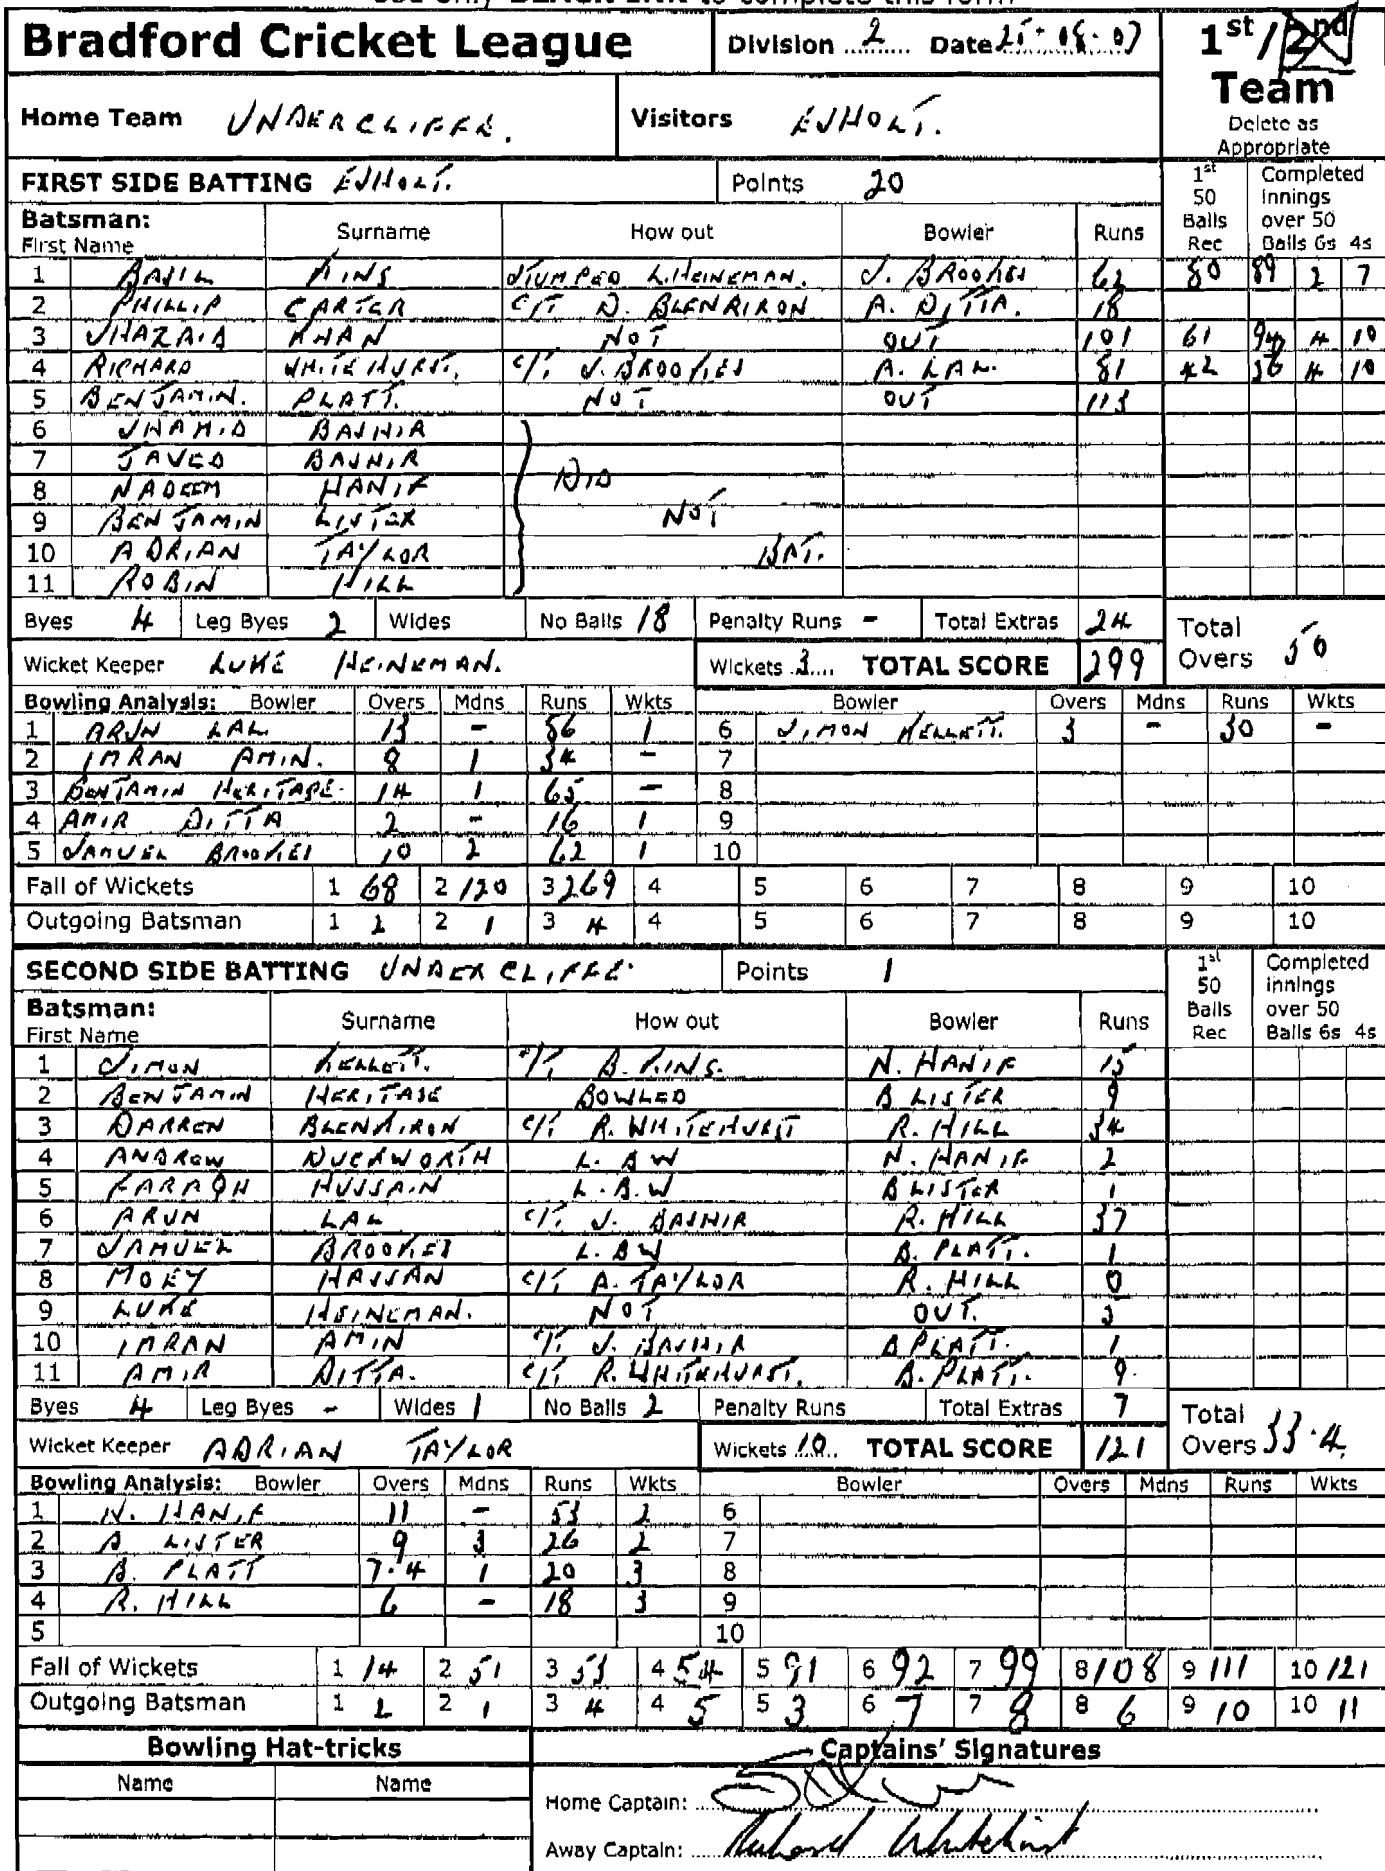 Bradford Cricket League Division 2 Date 25-08-07 1st / 2nd Team
Delete as Appropriate
Home Team UNDERCLIFFE. Visitors ESHOLT.
FIRST SIDE BATTING ESHOLT. Points 20
1st 50 Balls Rec Completed innings over 50 Balls 6s 4s
Batsman: First Name Surname How out Bowler Runs
1 BASIL KING STUMPED L. HEINEMAN. S. BROOKES 62 80 89 2 7
2 PHILLIP CARTER C/T D. BLENKIRON A. DITTA. 18
3 SHAZAID KHAN NOT OUT 101 61 4 10
4 RICHARD WHITEHURST. C/T. S. BROOKES A. LAL. 81 42 4 10
5 BENJAMIN. PLATT. NOT OUT 113
6 SHAHID BASHIR
7 JAVED BASHIR
8 NADEEM HANIF DID
9 BENJAMIN LISTER NOT
10 ADRIAN TAYLOR BAT.
11 ROBIN HILL
Byes 4 Leg Byes 2 Wides No Balls 18 Penalty Runs - Total Extras 24 Total Overs 50
Wicket Keeper LUKE HEINEMAN. Wickets 3 TOTAL SCORE 299
Bowling Analysis: Bowler Overs Mdns Runs Wkts Bowler Overs Mdns Runs Wkts
1 ARUN LAL 13 - 86 1 6 SIMON KELLETT. 3 - 30 -
2 IMRAN AMIN. 8 1 34 - 7
3 BENJAMIN HERITAGE. 14 1 65 - 8
4 AMIR DITTA 2 - 16 1 9
5 SAMUEL BROOKES 10 2 62 1 10
Fall of Wickets 1 68 2 120 3 269 4 5 6 7 8 9 10
Outgoing Batsman 1 2 2 1 3 4 4 5 6 7 8 9 10
SECOND SIDE BATTING UNDERCLIFFE. Points 1
1st 50 Balls Rec Completed innings over 50 Balls 6s 4s
Batsman: First Name Surname How out Bowler Runs
1 SIMON KELLETT. C/T. B. KING. N. HANIF 15
2 BENJAMIN HERITAGE BOWLED B LISTER 9
3 DARREN BLENKIRON C/T R. WHITEHURST R. HILL 34
4 ANDREW DUCKWORTH L. B W N. HANIF 2
5 FARAQH HUSSAIN L. B. W B LISTER 1
6 ARUN LAL C/T. J. BASHIR R. HILL 37
7 SAMUEL BROOKES L. BW B. PLATT. 1
8 MOEY HASSAN C/T A. TAYLOR R. HILL 0
9 LUKE HEINEMAN. NOT OUT. 5
10 IMRAN AMIN C/T. J. BASHIR B PLATT. 1
11 AMIR DITTA. C/T R. WHITEHURST. B. PLATT. 9
Byes 4 Leg Byes - Wides 1 No Balls 2 Penalty Runs Total Extras 7 Total Overs 33.4
Wicket Keeper ADRIAN TAYLOR Wickets 10 TOTAL SCORE 121
Bowling Analysis: Bowler Overs Mdns Runs Wkts Bowler Overs Mdns Runs Wkts
1 N. HANIF 11 - 53 2 6
2 B LISTER 9 3 26 2 7
3 B. PLATT 7.4 1 20 3 8
4 R. HILL 6 - 18 3 9
5 10
Fall of Wickets 1 14 2 51 3 53 4 54 5 91 6 92 7 99 8 108 9 111 10 121
Outgoing Batsman 1 2 2 1 3 4 4 5 5 3 6 7 7 8 8 6 9 10 10 11
Bowling Hat-tricks Captains' Signatures
Name Name
Home Captain:
Away Captain: Richard Whitehurst